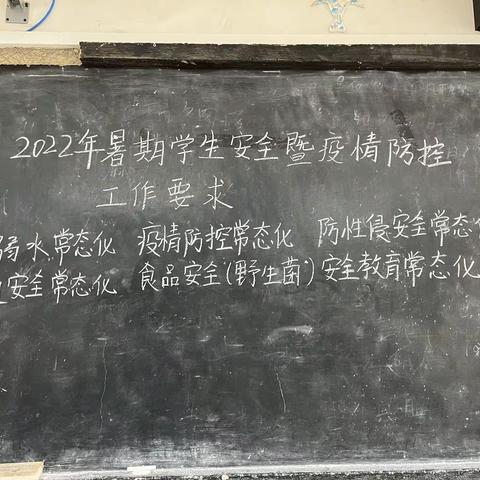 2022年暑期学生安全暨疫情防控
工作要求
溺水常态化 疫情防控常态化 防性侵安全常态化
安全常态化 食品安全(野生菌)安全教育常态化